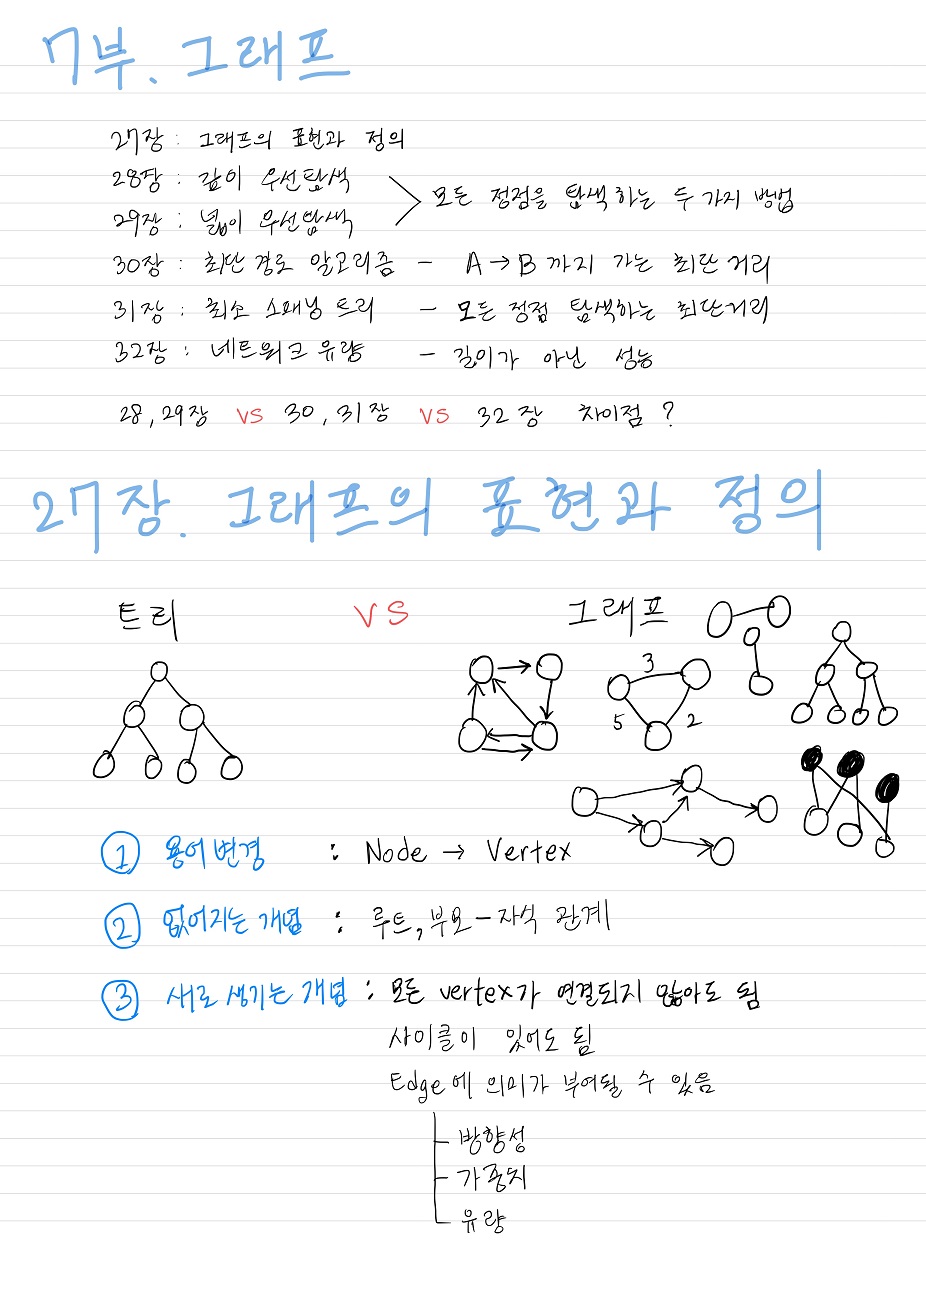 7부. 그래프
27장 : 그래프의 표현과 정의
28장 : 깊이 우선탐색
29장 : 넓이 우선탐색
모든 정점을 탐색하는 두 가지 방법
30장 : 최단 경로 알고리즘 - A → B 까지 가는 최단거리
31장 : 최소 스패닝 트리 - 모든 정점 탐색하는 최단거리
32장 : 네트워크 유량 - 길이가 아닌 성능
28, 29장 VS 30, 31장 VS 32장 차이점 ?
27장. 그래프의 표현과 정의
트리 VS 그래프
3
5 2
① 용어변경 : Node → Vertex
② 없어지는 개념 : 루트, 부모-자식 관계
③ 새로 생기는 개념 : 모든 vertex가 연결되지 않아도 됨
사이클이 있어도 됨
Edge에 의미가 부여될 수 있음
방향성
가중치
유량